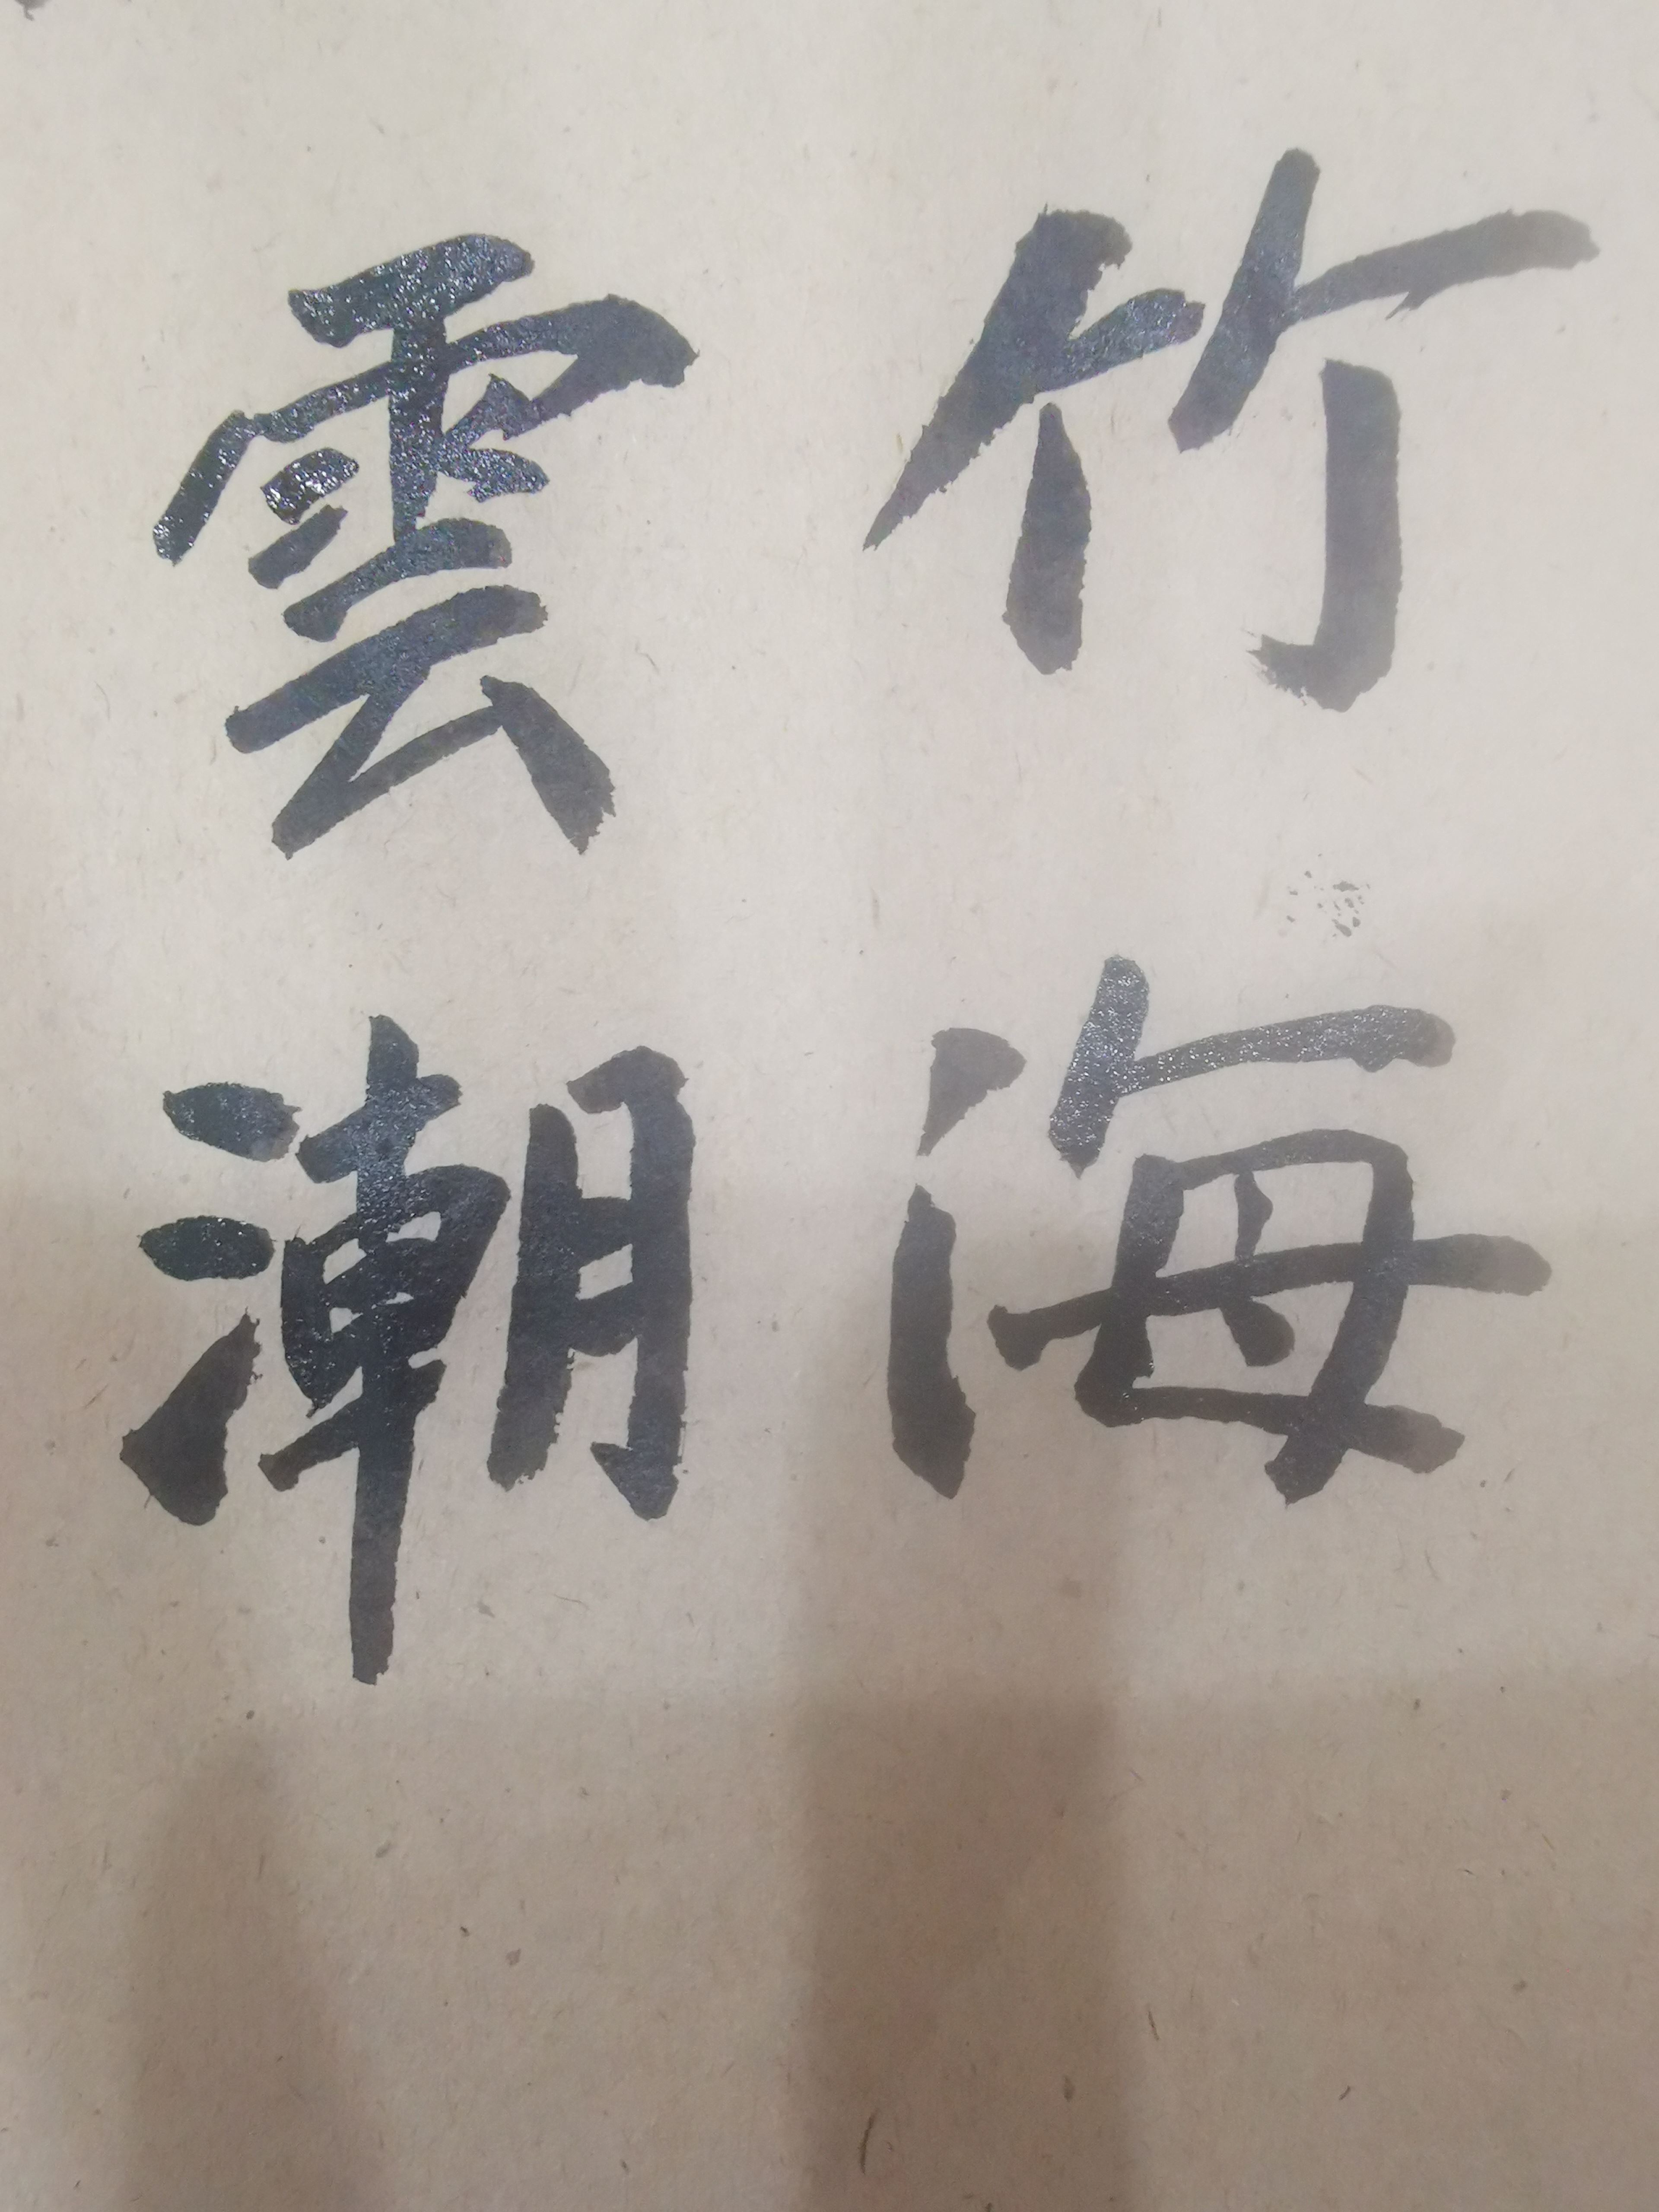 竹海
雲潮